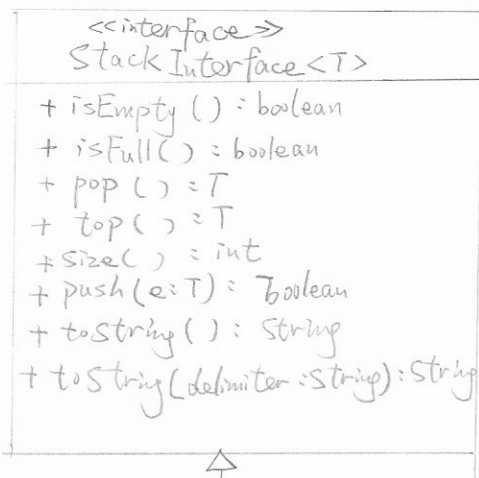 <<interface>>
StackInterface<T>
+ isEmpty () : boolean
+ isFull() : boolean
+ pop () : T
+ top () : T
+ size( ) : int
+ push(e:T) : Boolean
+ toString() : String
+ toString(delimiter:String):String